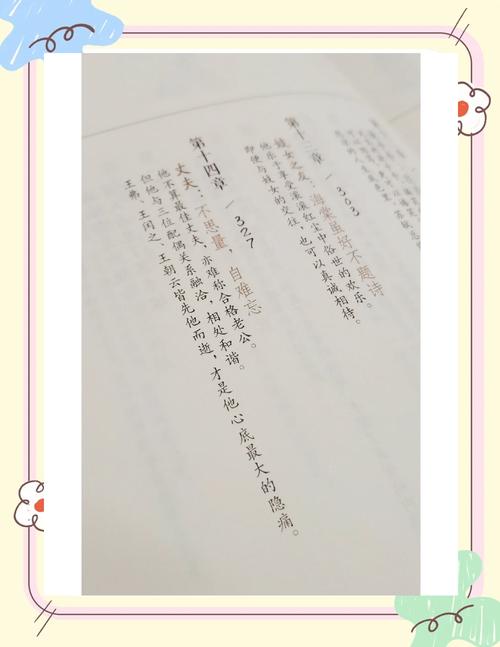 第十三章 — 303
妓女之友：海棠虽好不题诗
他乐于享受滚滚红尘中俗世的欢乐。
即使与妓女的交往，也可以真诚相待。
第十四章 — 327
丈夫：不思量，自难忘
他不算最佳丈夫，亦难称合格老公。
但他与三位配偶关系融洽，相处和谐。
王弗、王闰之、王朝云皆先他而逝，才是他心底最大的隐痛。